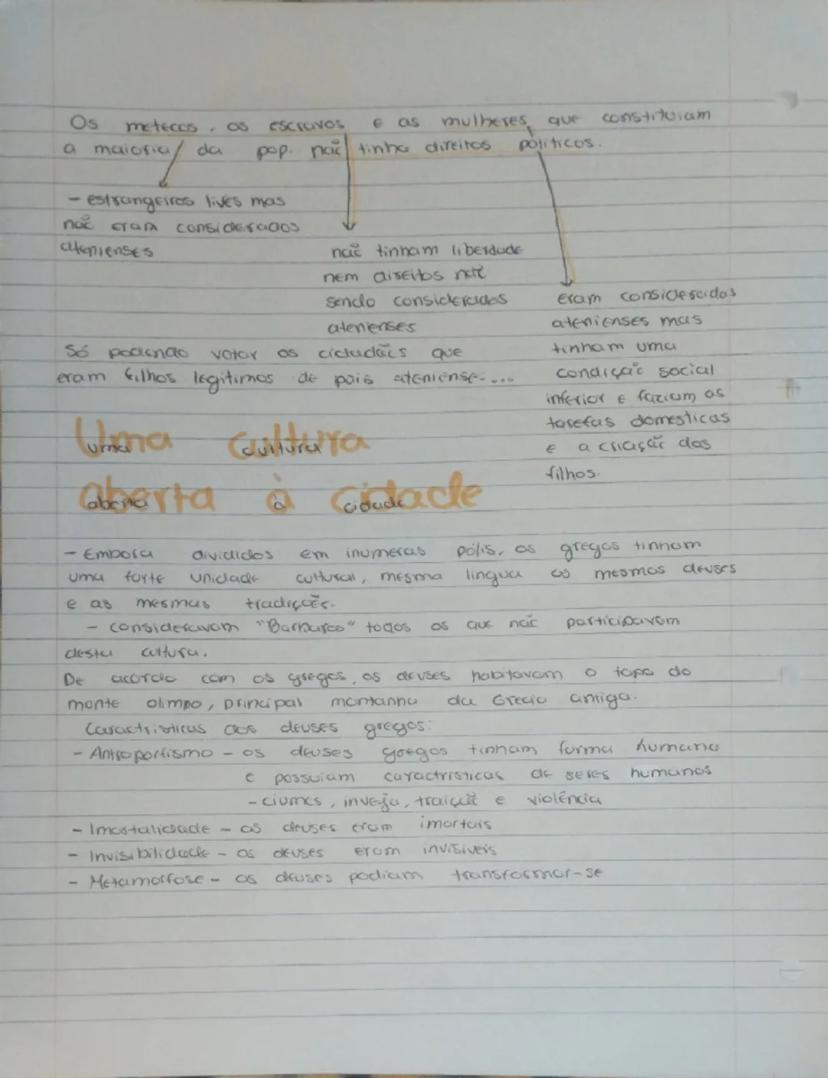 Os metecos, os escravos e as mulheres, que constituiam
a maioria da pop. não tinha direitos politicos.
- estrangeiros livres mas
não eram considerados
atenienses
não tinham liberdade
nem direitos não
sendo considerados
atenienses
eram consideradas
atenienses mas
tinham uma
condição social
inferior e faziam as
tarefas domesticas
e a criação dos
filhos.
Só podendo votar os cidadãos que
eram filhos legitimos de pais ateniense....
Uma cultura
aberta à cidade
- Embora divididos em inumeras pólis, os gregos tinham
uma forte unidade cultural, mesma lingua os mesmos deuses
e as mesmas tradições.
- consideravam "Barbaros" todos os que não participavam
desta cultura.
De acordo com os gregos, os deuses habitavam o topo do
monte olimpo, principal montanha da Grecia antiga.
Caractristicas dos deuses gregos:
- Antroporfismo - os deuses gregos tinham forma humana
e possuiam caractristicas de seres humanos
- ciumes, inveja, traição e violência
- Imortalidade - os deuses eram imortais
- Invisibilidade - os deuses eram invisiveis
- Metamorfose - os deuses podiam transformar-se